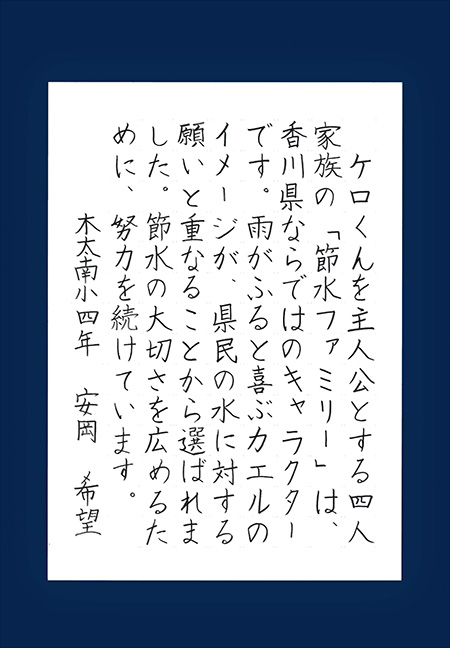 ケロくんを主人公とする四人
家族の「節水ファミリー」は、
香川県ならではのキャラクター
です。雨がふると喜ぶカエルの
イメージが、県民の水に対する
願いと重なることから選ばれま
した。節水の大切さを広めるた
めに、努力を続けています。
木太南小四年 安岡 希望